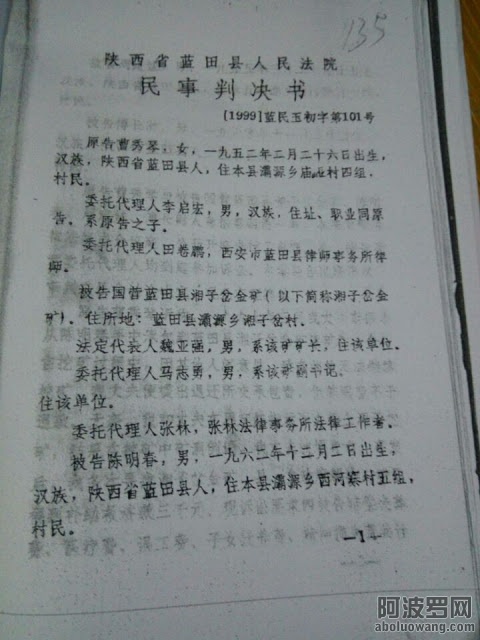 135
陕西省蓝田县人民法院
民事判决书
[1999]蓝民五初字第101号
原告曹秀琴,女,一九五二年二月二十六日出生,
汉族,陕西省蓝田县人,住本县灞源乡庙村四组,
村民。
委托代理人李启宏,男,汉族,住址、职业同原
告。系原告之子。
委托代理人田卷鹏,西安市蓝田县律师事务所律
师。
被告国营蓝田县湘子岔金矿(以下简称湘子岔金
矿)。住所地:蓝田县灞源乡湘子岔村。
法定代表人魏亚强,男,系该矿矿长,住该单位。
委托代理人马志勇,男,系该矿副书记,
住该单位。
委托代理人张林,张林法律事务所法律工作者。
被告陈明春,男,一九六二年十二月二日出生,
汉族,陕西省蓝田县人,住本县灞源乡西河寨村五组,
村民。
—1—
阿波罗网
aboluowang.com